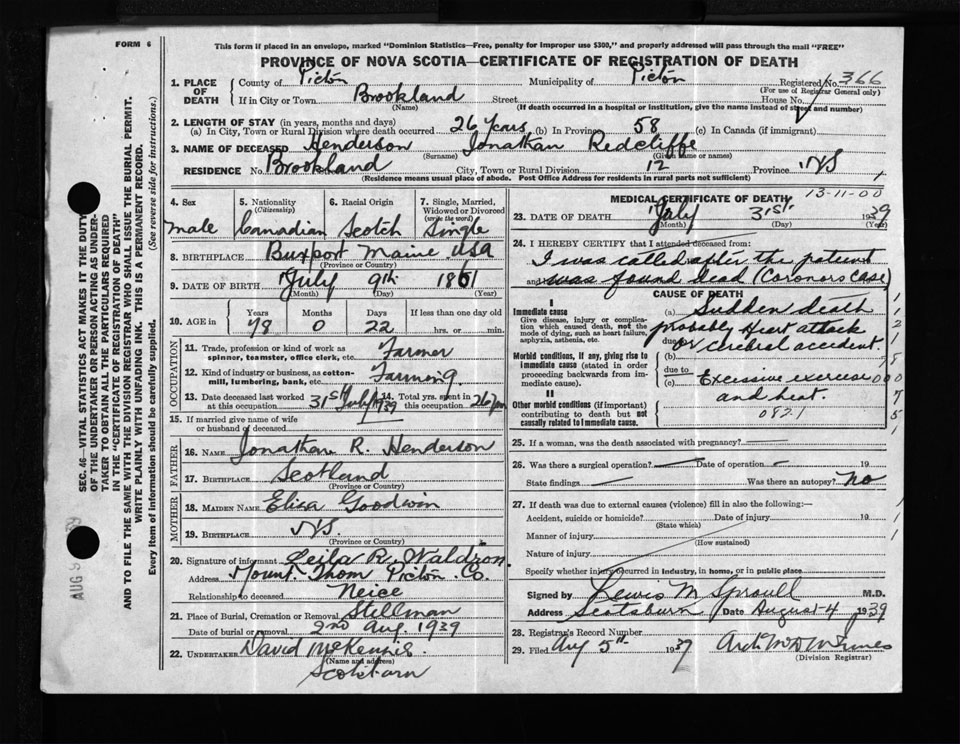 FORM 6
This form if placed in an envelope, marked "Dominion Statistics—Free, penalty for improper use $300," and properly addressed will pass through the mail "FREE"
PROVINCE OF NOVA SCOTIA—CERTIFICATE OF REGISTRATION OF DEATH
1. PLACE OF DEATH
County of Pictou Municipality of Pictou Registered No. 366
(For use of Registrar General only)
If in City or Town Brookland Street House No.
(Name) (If death occurred in a hospital or institution, give the name instead of street and number)
2. LENGTH OF STAY (in years, months and days)
(a) In City, Town or Rural Division where death occurred 26 years (b) In Province 58 (c) In Canada (if immigrant)
3. NAME OF DECEASED Henderson Jonathan Redcliffe
(Surname) (Given name or names)
RESIDENCE No. Brookland City, Town or Rural Division 12 Province N.S. 1
(Residence means usual place of abode. Post Office Address for residents in rural parts not sufficient)
4. Sex 5. Nationality (Citizenship) 6. Racial Origin 7. Single, Married, Widowed or Divorced (write the word)
male Canadian Scotch Single
8. BIRTHPLACE Buxport Maine USA
(Province or Country)
9. DATE OF BIRTH July 9th 1861
(Month) (Day) (Year)
10. AGE in Years Months Days If less than one day old
78 0 22 hrs. or min.
OCCUPATION
11. Trade, profession or kind of work as spinner, teamster, office clerk, etc. Farmer
12. Kind of industry or business, as cotton-mill, lumbering, bank, etc. Farming
13. Date deceased last worked at this occupation 31st July 1939 14. Total yrs. spent in this occupation 26
15. If married give name of wife or husband of deceased
FATHER
16. NAME Jonathan R. Henderson
17. BIRTHPLACE Scotland
(Province or Country)
MOTHER
18. MAIDEN NAME Eliza Goodwin
19. BIRTHPLACE N.S.
(Province or Country)
20. Signature of informant Leila R. Waldron
Address Mount Thom Pictou Co.
Relationship to deceased Neice
21. Place of Burial, Cremation or Removal Stillman
Date of burial or removal 2nd Aug. 1939
22. UNDERTAKER David McKennis
(Name and address)
Scotsburn
MEDICAL CERTIFICATE OF DEATH 13-11-00
23. DATE OF DEATH July 31st 1939
(Month) (Day) (Year)
24. I HEREBY CERTIFY that I attended deceased from:
I was called after the patient
and was found dead (Coroners Case)
CAUSE OF DEATH
I
Immediate cause
Give disease, injury or complication which caused death, not the mode of dying, such as heart failure, asphyxia, asthenia, etc.
(a) Sudden death
probably Heart attack
due to or cerebral accident.
Morbid conditions, if any, giving rise to immediate cause (stated in order proceeding backwards from immediate cause).
(b)
due to
(c) Excessive exercise
and heat.
II
Other morbid conditions (if important) contributing to death but not causally related to immediate cause.
0821
25. If a woman, was the death associated with pregnancy?
26. Was there a surgical operation? Date of operation 19
State findings Was there an autopsy? No
27. If death was due to external causes (violence) fill in also the following:—
Accident, suicide or homicide? Date of injury 19
(State which)
Manner of injury
(How sustained)
Nature of injury
Specify whether injury occurred in industry, in home, or in public place
Signed by Lewis M Sproull M.D.
Address Scotsburn Date August 4 1939
28. Registrar's Record Number
29. Filed Aug 5th 1937
(Division Registrar)
SEC. 46—VITAL STATISTICS ACT MAKES IT THE DUTY
OF THE UNDERTAKER OR PERSON ACTING AS UNDER-
TAKER TO OBTAIN ALL THE PARTICULARS REQUIRED
IN THE "CERTIFICATE OF REGISTRATION OF DEATH"
AND TO FILE THE SAME WITH THE DIVISION REGISTRAR WHO SHALL ISSUE THE BURIAL PERMIT.
WRITE PLAINLY WITH UNFADING INK. THIS IS A PERMANENT RECORD.
Every item of information should be carefully supplied. (See reverse side for instructions.)